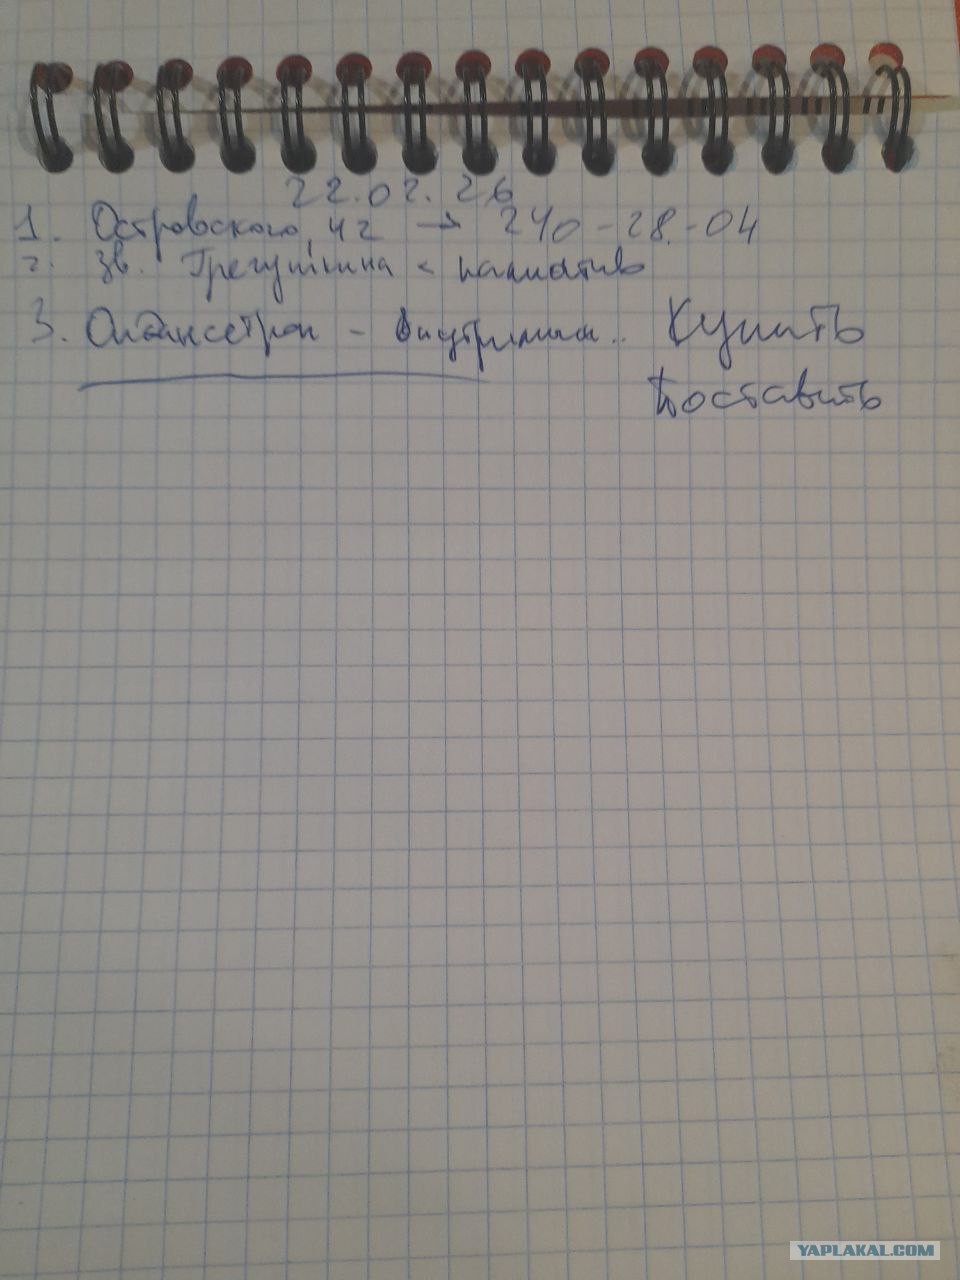 22.02.26
1. Островского, 42 → 240-28-04
2. Зв. Трегушкина < паллиатив
3. Ондансетрон - внутримыш.. Купить
Поставить
YAPLAKAL.COM